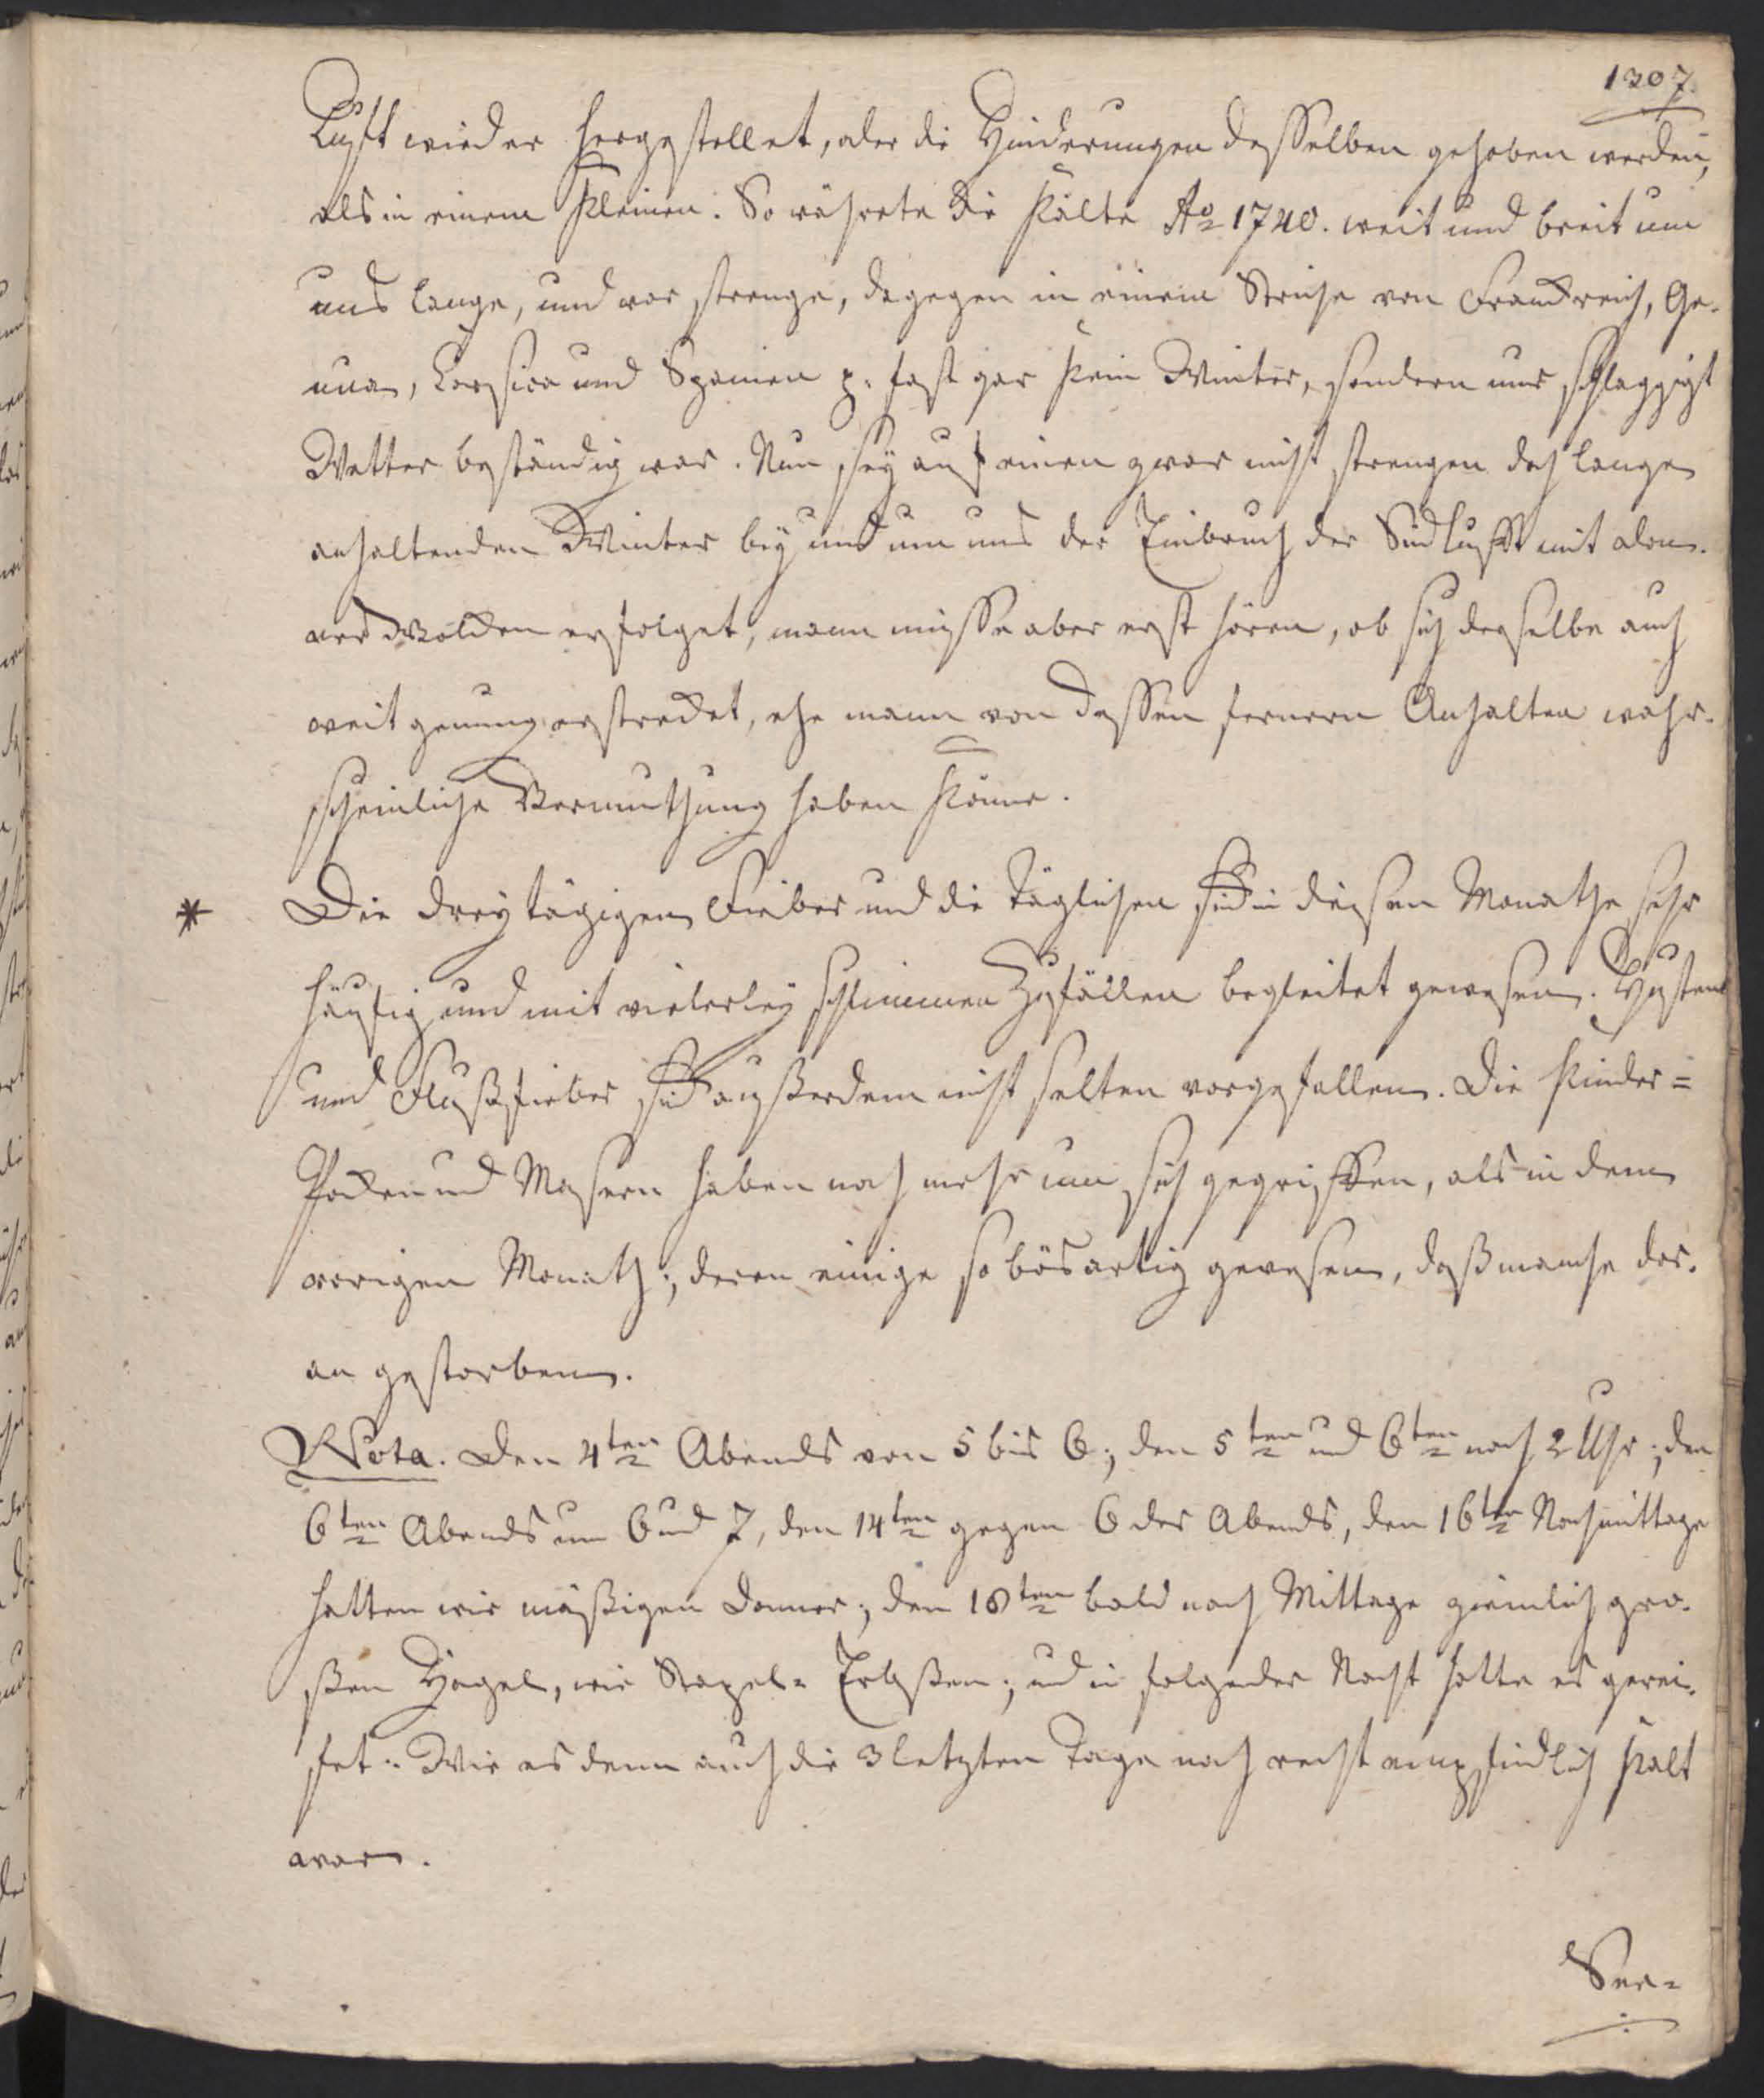 1307.
Lufft wieder hergestellet, oder die Hinderungen desselben gehoben werden,
als in einem kleinen. So währete die Kälte Ao 1740. weit und breit um
uns lange, und war strenge, dagegen in einem Striche von Franckreich, Ge-
nua, Corsica und Spanien p. fast gar kein Winter, sondern nur schlaggigt
Wetter beständig war. Nun sey auf einen zwar nicht strengen doch lange
anhaltenden Winter bey und um uns der Einbruch der Südlufft mit
Wolcken erfolget, mann müsse aber erst hören, ob sich derselbe auch
weit genung erstrecket, ehe mann von dessen fernern Anhalten wahr-
scheinliche Vermuthung haben könne.
* Die dreytägigen Fieber und die täglichen sind in diesem Monathe sehr
häufig und mit vielerley schlimmen Zufällen begleitet gewesen. Husten
und Flußfieber sind außerdem nicht selten vorgefallen. Die Kinder=
Pocken und Masern haben noch mehr um sich gegriffen, als in dem
vorigen Monath; deren einige so bösartig gewesen, daß manche dar-
an gestorben.
Nota. Den 4ten Abends von 5 bis 6; den 5ten und 6ten nach 2 Uhr; den
6ten Abends um 6 und 7, den 14ten gegen 6 des Abends, den 16ten Nachmittage
hatten wir mäßigen Donner; den 18ten bald nach Mittage ziemlich gro-
ßen Hagel, wie Stapel= Erbßen; und in folgender Nacht hatte es gerei-
fet. Wie es denn auch die 3 letzten Tage noch recht empfindlich kalt
war.
Ser=